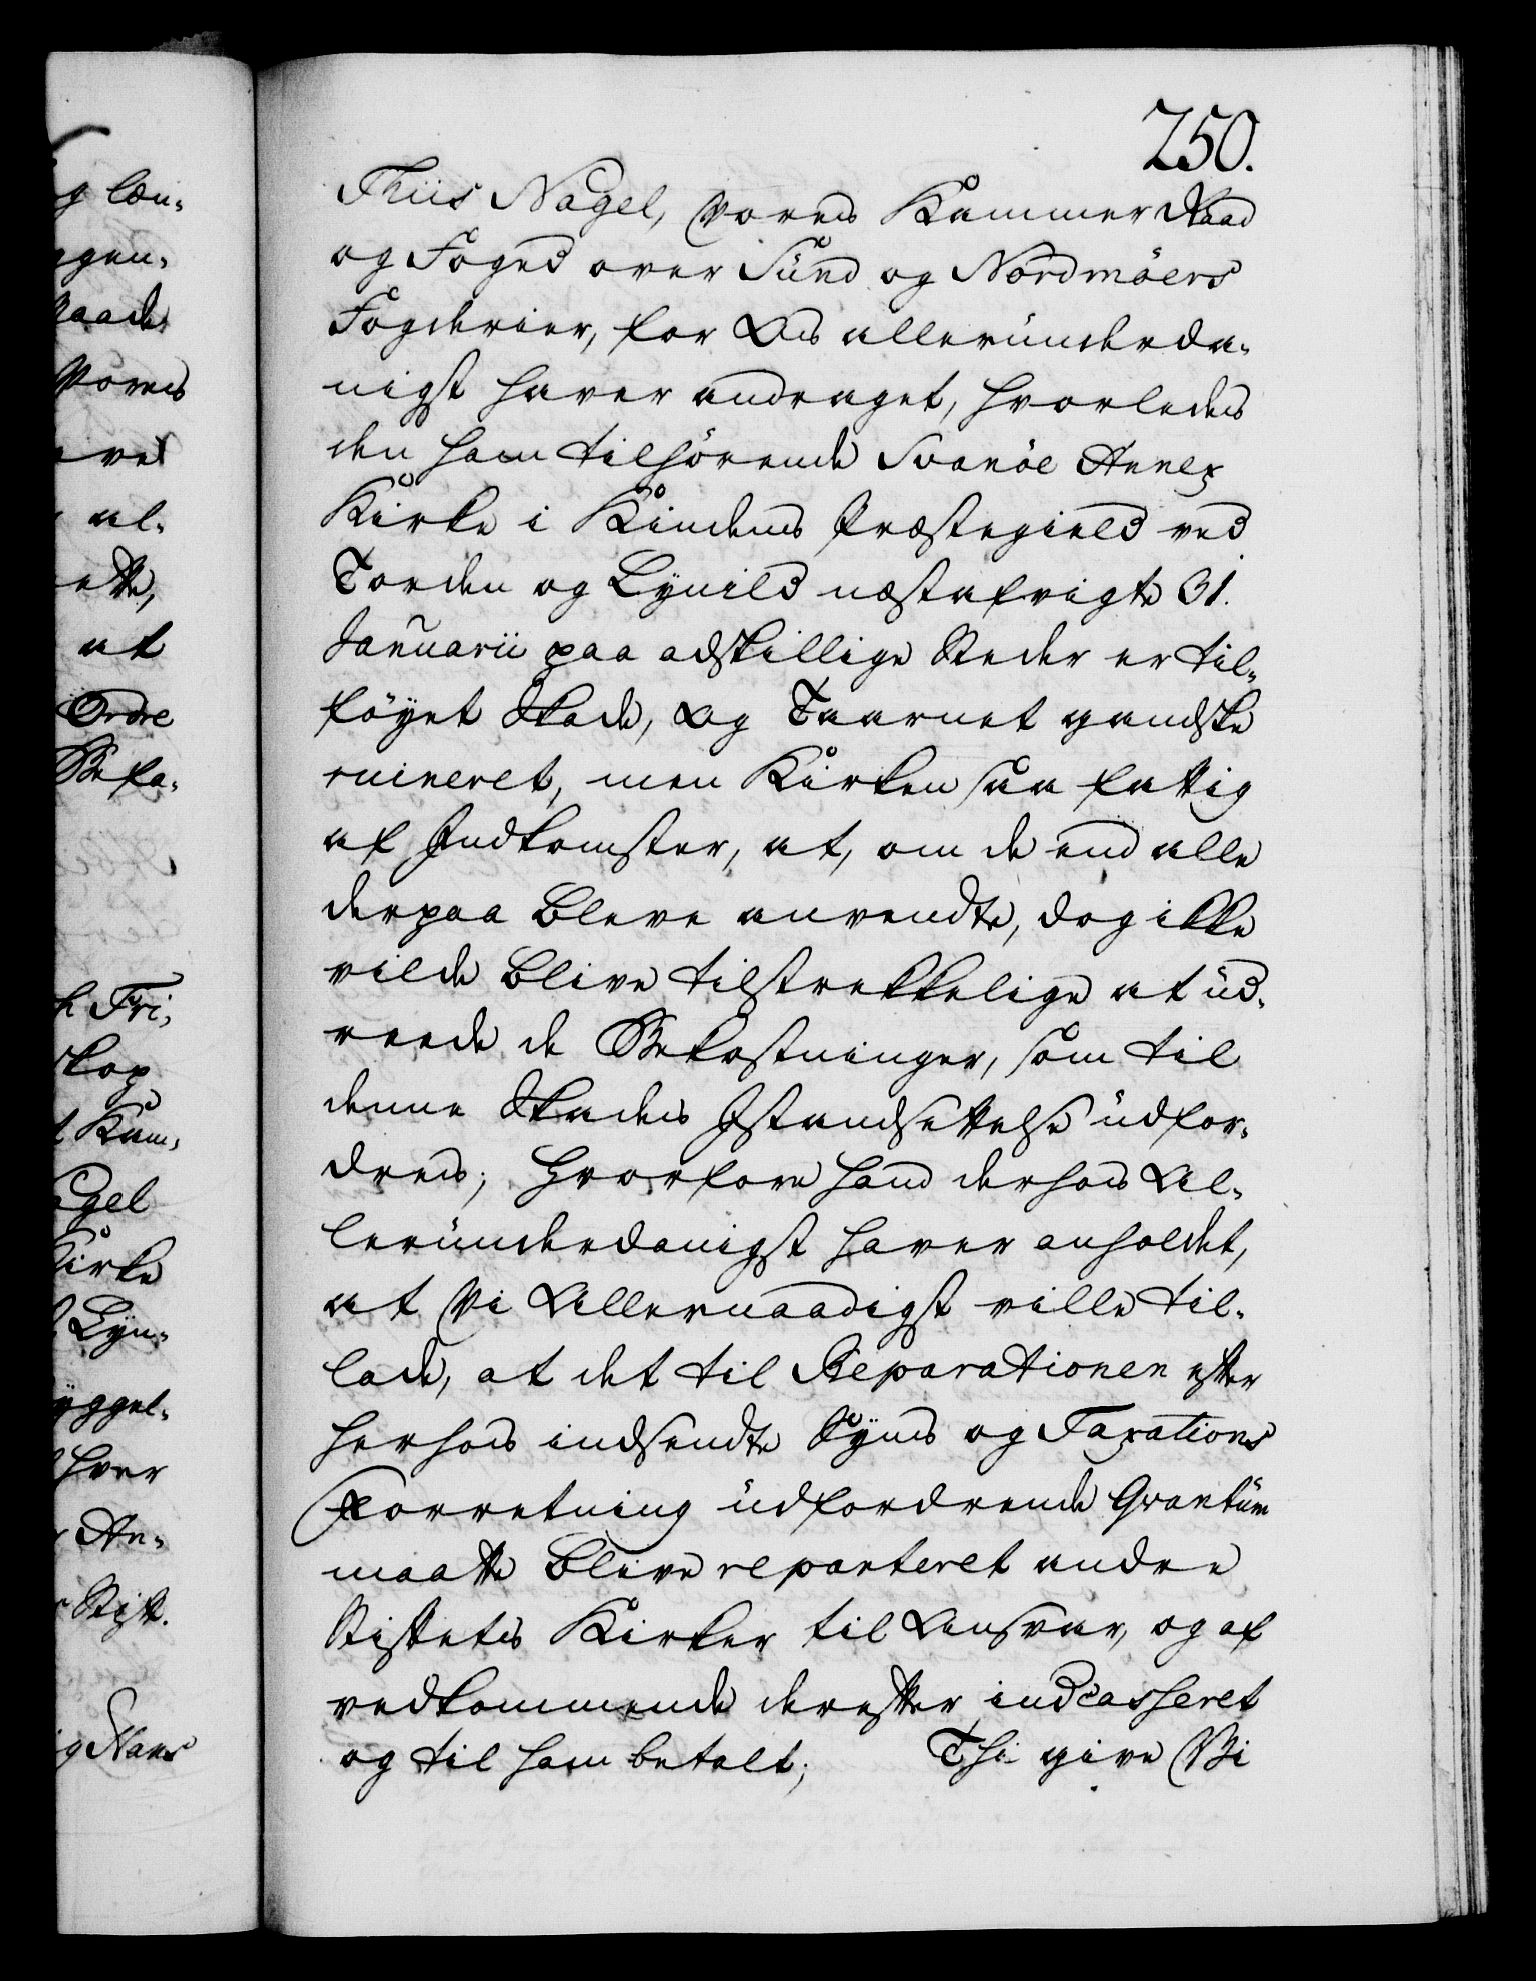 250.
Thiis Nagel, Vores Kammer Raad
og Foged over Sund og Nordmöers
Fogderier, for Os alleründerda-
nigst haver andraget, hvorledes
den ham tilhörende Svanöe Annex
Kirke i Kindens Præstegield ved
Torden og Lynild næstafvigte 31.
Januarii paa adskillige Steder er til-
föyet Skade, og Taarnet gandske
ruineret, men Kirken saa fattig
af Indkomster, at, om de end alle
derpaa bleve anvendte, dog ikke
vilde blive tilstrekkelige at üd-
reede de Bekostninger, som til
denne Skades Istandsettelse üdfor-
dres; Hvorfore hand derhos Al-
leründerdanigst haver anholdet,
at Vi Allernaadigst ville til-
lade, at det til Reparationen efter
herhos indsendte Syns og Taxations
Forretning üdfordrende Qvantüm
maatte blive reparteret andre
Stiftets Kirker til Ansvar, og af
vedkommende derefter indcasseret
og til ham betalt; Thi give Vi
g læn-
gen-
Raade
Vores
al-
ette,
at
Ordre
Befa-
Fri-
skop
Kam-
agel
Kirke
Lyn-
ygget-
hver
An-
Stift.
g Raes